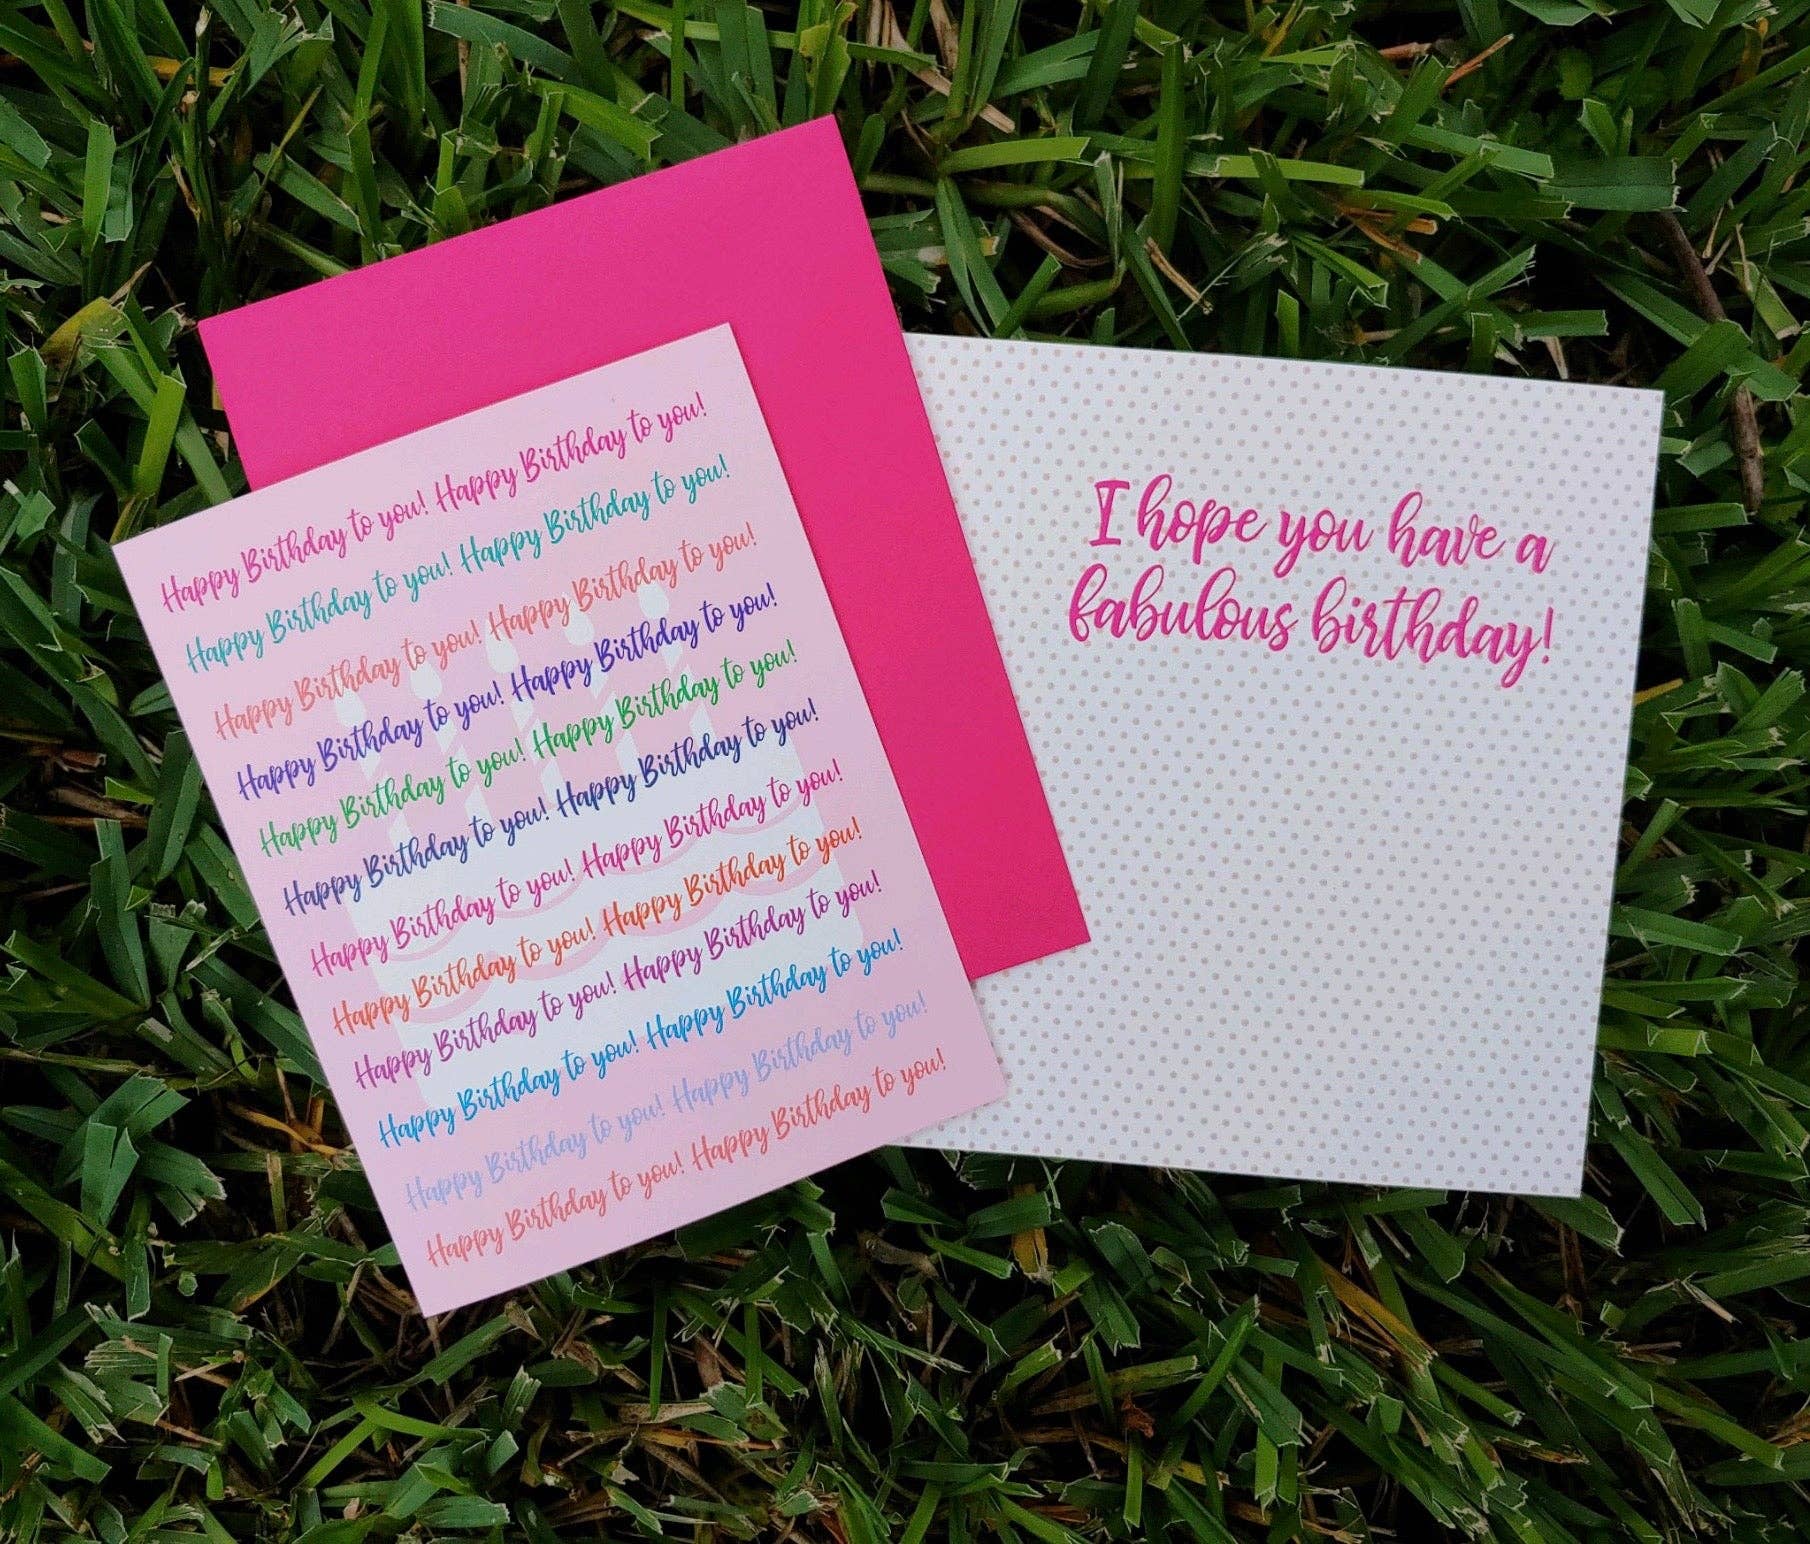 Happy Birthday to you! Happy Birthday to you!
Happy Birthday to you! Happy Birthday to you!
Happy Birthday to you! Happy Birthday to you!
Happy Birthday to you! Happy Birthday to you!
Happy Birthday to you! Happy Birthday to you!
Happy Birthday to you! Happy Birthday to you!
Happy Birthday to you! Happy Birthday to you!
Happy Birthday to you! Happy Birthday to you!
Happy Birthday to you! Happy Birthday to you!
Happy Birthday to you! Happy Birthday to you!
Happy Birthday to you! Happy Birthday to you!
Happy Birthday to you! Happy Birthday to you!
I hope you have a
fabulous birthday!